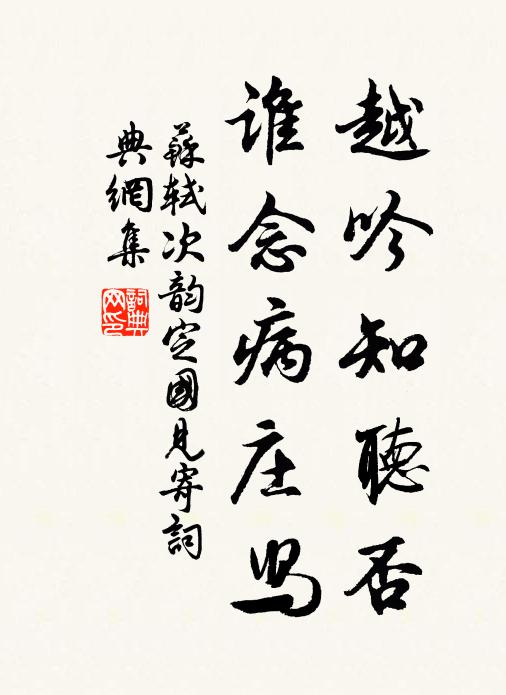 越吟知聽否
谁念病庄舄
蘇軾次韵定國見寄詞
典網集
詞典网印